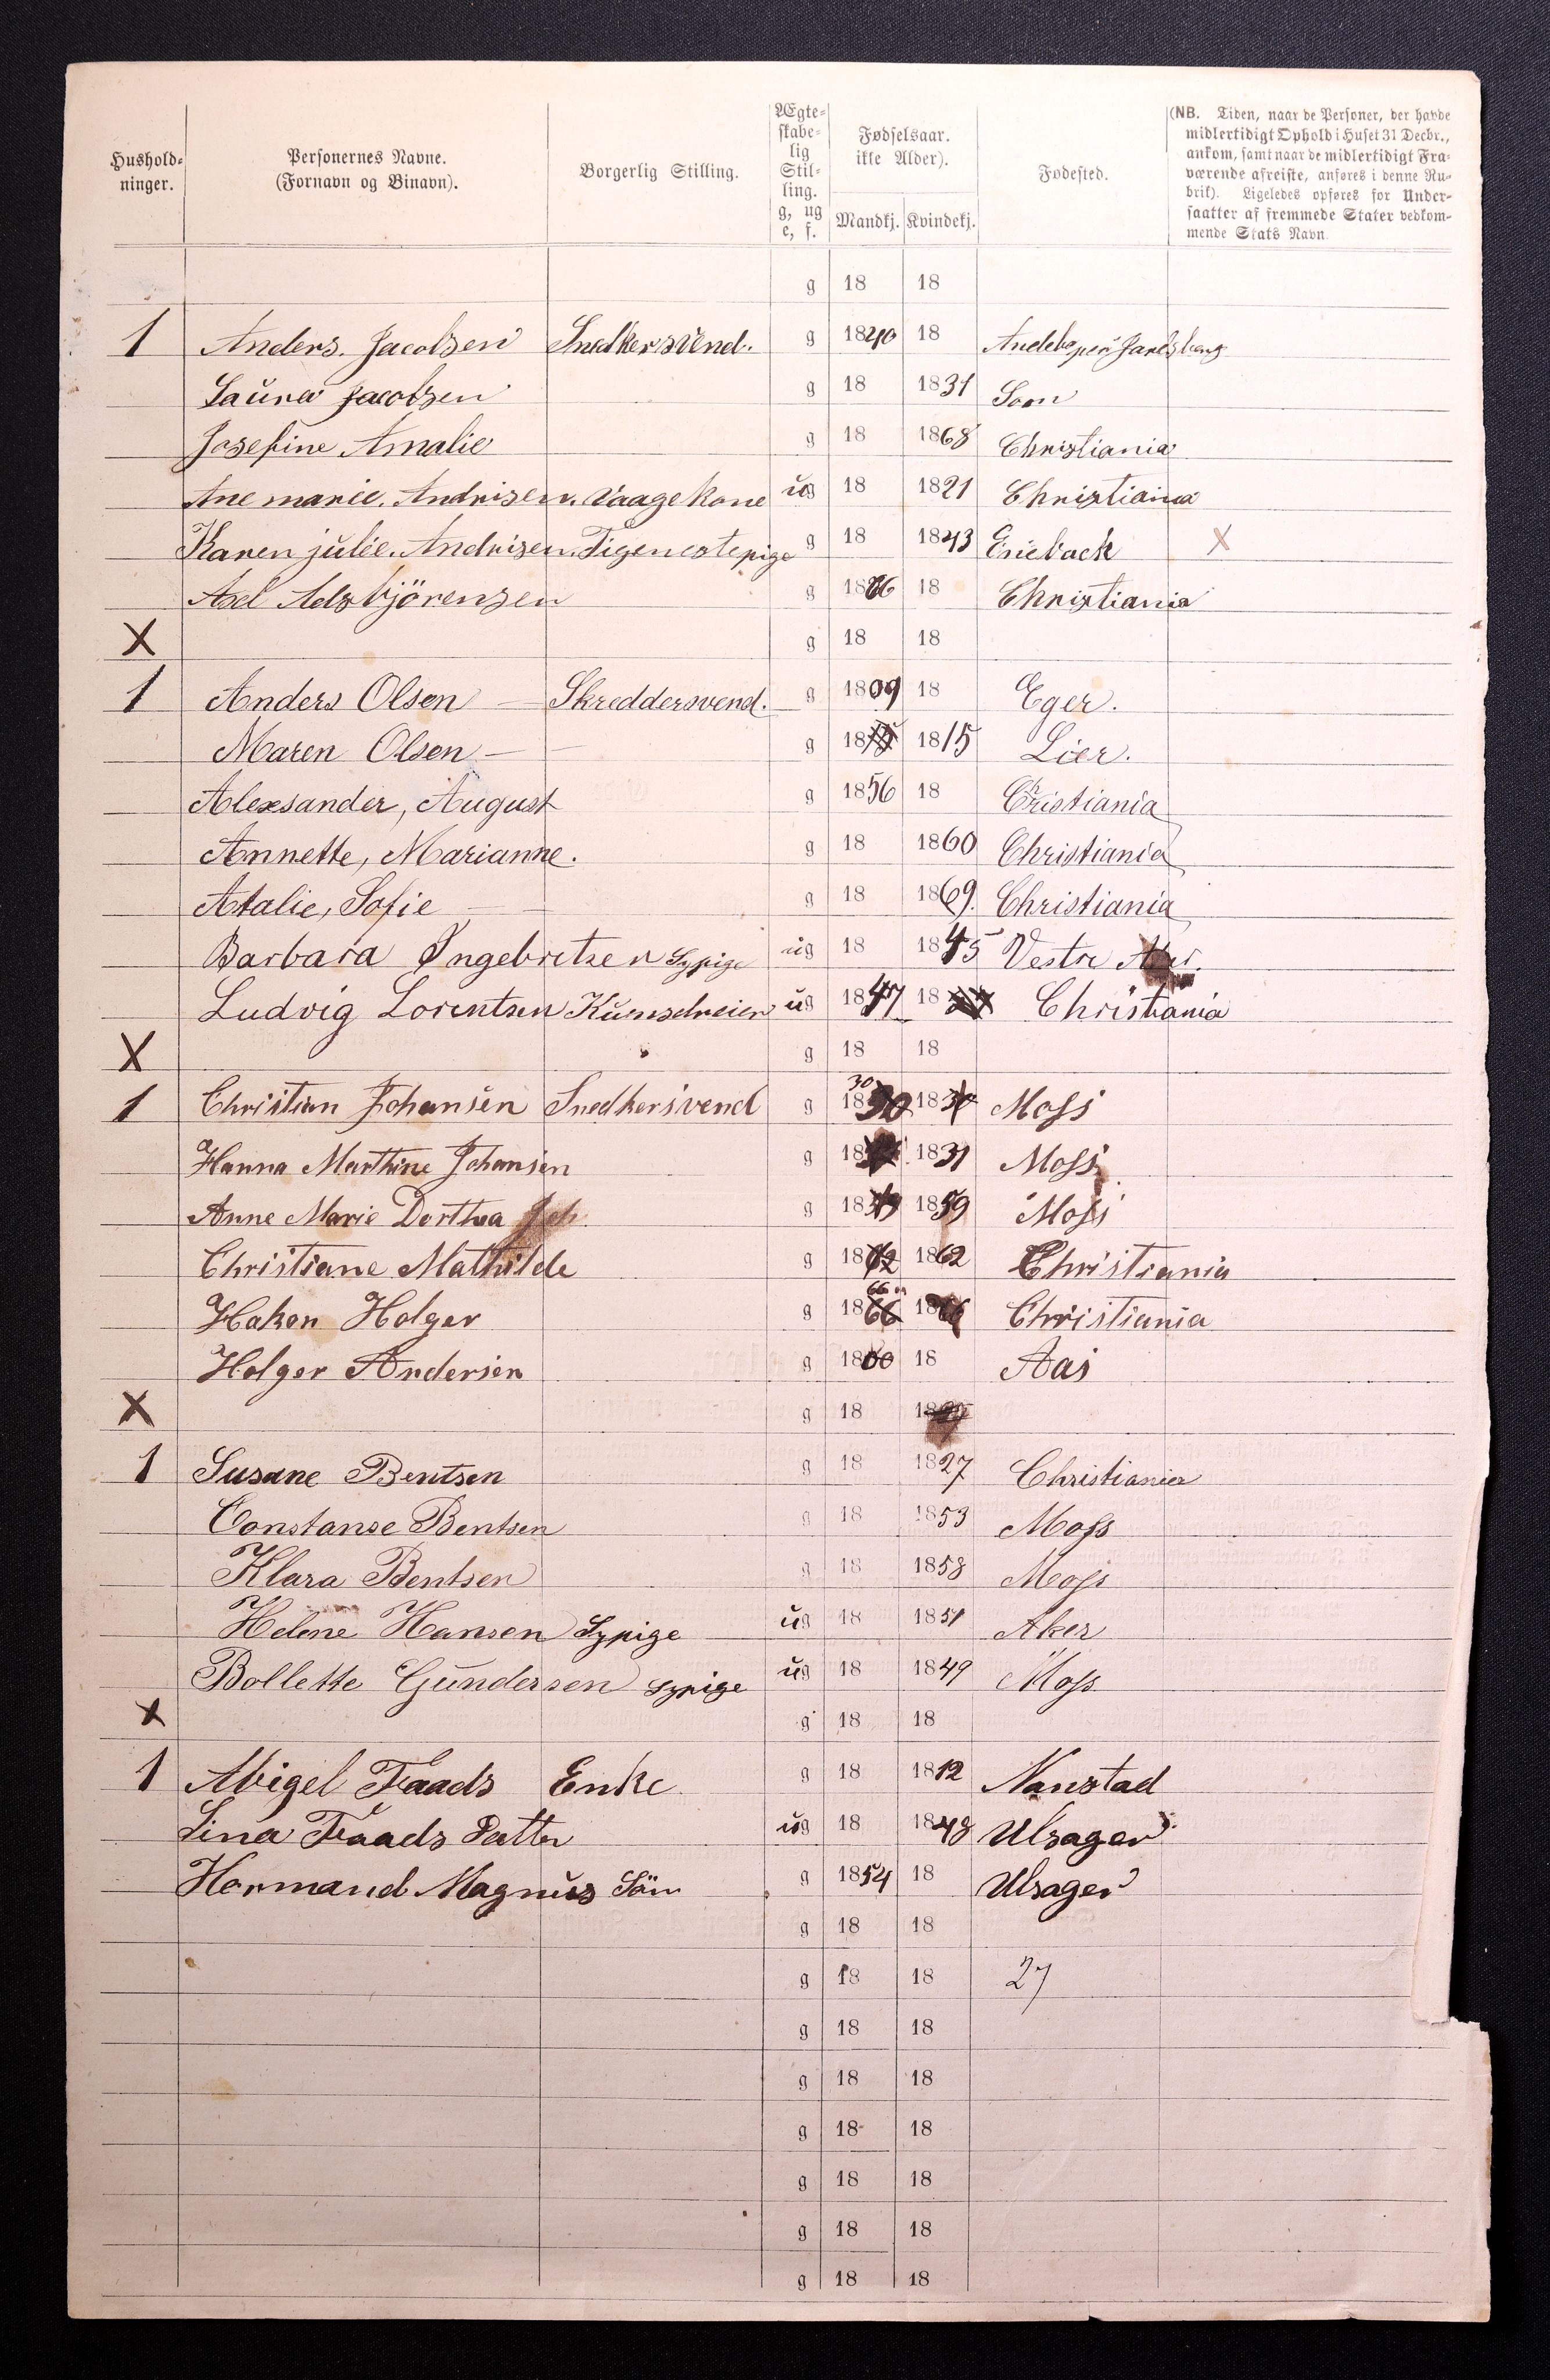 Hushold-
ninger.
Personernes Navne.
(Fornavn og Binavn).
Borgerlig Stilling.
Ægte-
skabe-
lig
Stil-
ling.
g, ug
e, f.
Fødselsaar.
ikke Alder).
Mandkj. Kvindekj.
Fødested.
(NB. Tiden, naar de Personer, der havde
midlertidigt Ophold i Huset 31 Decbr.,
ankom, samt naar de midlertidigt Fra-
værende afreiste, anføres i denne Ru-
brik). Ligeledes opføres for Under-
saatter af fremmede Stater vedkom-
mende Stats Navn.
g 18 18
1 Anders. Jacobsen Snedkersvend. g 1840 18 Jarlsberg
Laura Jacobsen g 18 1831 Soon
Josefine Amalie g 18 1868 Christiania
Ane marie. Andrisen. Vaagekone ug 18 1821 Christiania
Karen julie. Andrisen. Tigenestepige g 18 1843 Eneback X
Axel Adsbjörensen g 18 Christiania
X g 18 18
1 Anders Olsen — Skreddersvend. g 1809 18 Eger.
Maren Olsen — — g 18 1815 Lier.
Alexsander, August g 1856 18 Cristiania
Annette, Marianne. g 18 1860 Christiania
Atalie, Sofie — — g 18 1869. Christiania
Barbara Ingebretsen Sypige ug 18 1845 Vestre
Ludvig Lorentsen Kunsdreier ug 1847 18 Christiania
X g 18 18
1 Christian Johansen Snedkersvend g 30 18 18 Moss
Hanna Marthine Johansen g 18 1831 Moss
Anne Marie Dorthea Joh. g 18 1859 Moss
Christiane Mathilde g 18 1862 Christiania
Hakon Holger g 66 18 18 Christiania
Holger Andersen g 1860 18 Aas
X g 18 18
1 Susane Bentsen g 18 1827 Christiania
Constanse Bentsen g 18 1853 Moss
Klara Bentsen g 18 1858 Moss
Helene Hansen Sypige ug 18 1851 Aker
Bollette Gundersen Sypige ug 18 1849 Moss
X g 18 18
1 Abigel Faads Enke g 18 1812 Nanstad
Lina Faads Datter ug 18 1848 Ulsager
Hermand Magnus Sön g 1854 18 Ulsager
g 18 18
g 18 18 27
g 18 18
g 18 18
g 18 18
g 18 18
g 18 18
g 18 18